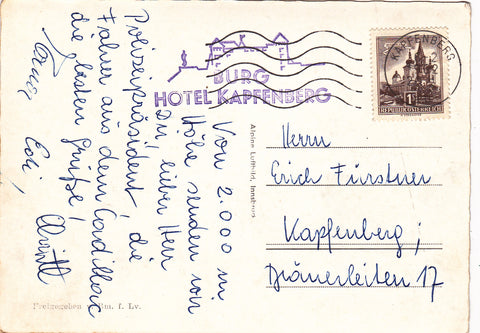 Von 2.000 m
Höhe senden wir
Dir, lieber Herr
Polizeipräsident, die
Fahrer aus dem Cadillac
die besten Grüße,
Edi,
BURG
HOTEL KAPFENBERG
KAPFENBERG
REPUBLIK ÖSTERREICH
1
Alpine Luftbild, Innsbruck
Herrn
Erich Fürstner
Kapfenberg;
Grömerleiten 17
Freigegeben v. Bm. f. Lv.